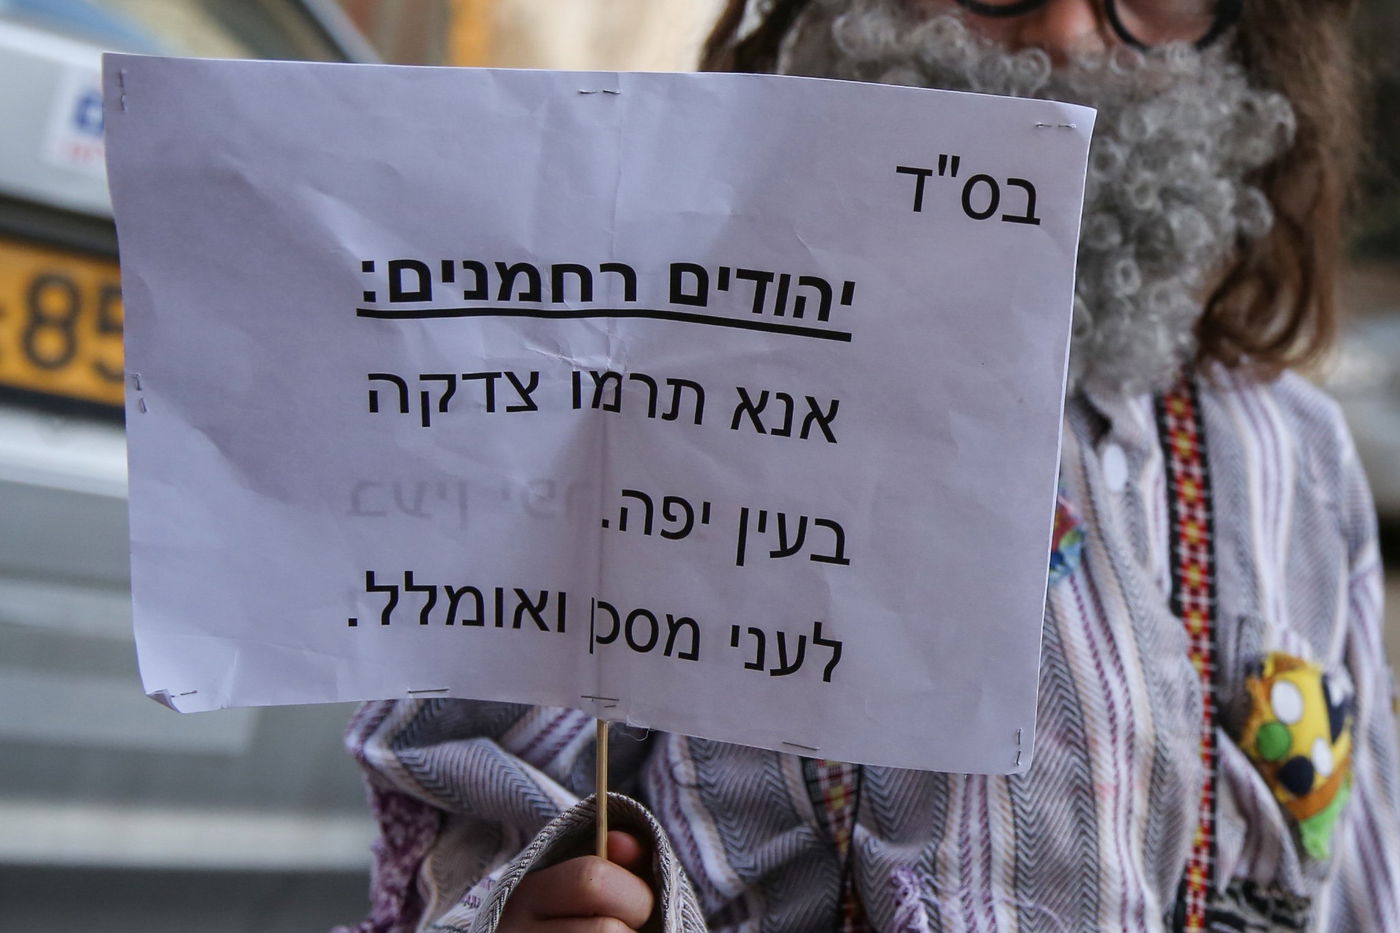 בס"ד
יהודים רחמנים:
אנא תרמו צדקה
בעין יפה.
לעני מסכן ואומלל.
85